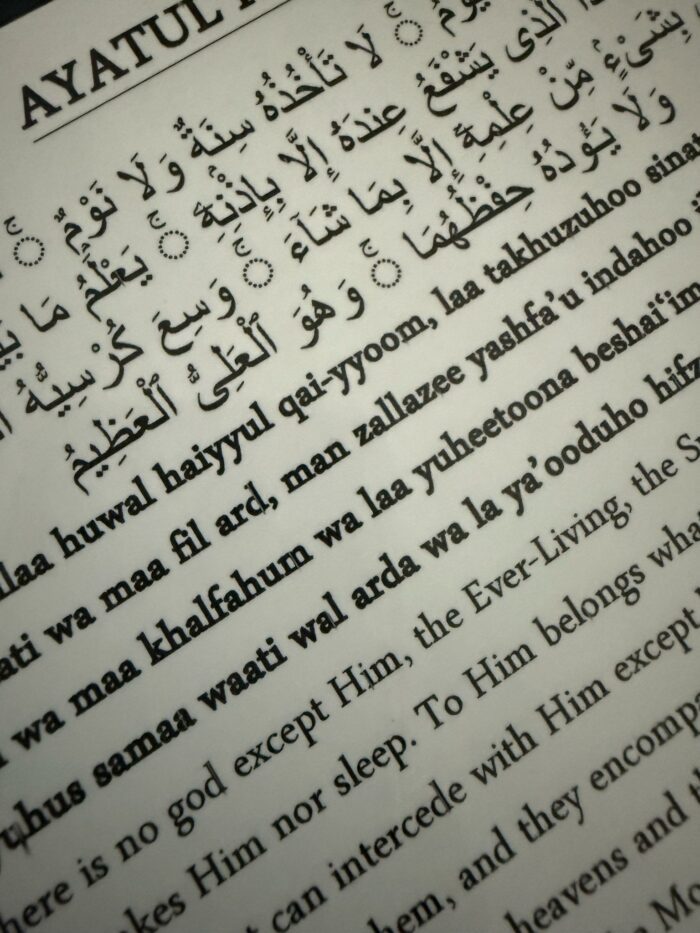 AYATUL
يَوْمُ ۚ لَا تَأْخُذُهُ سِنَةٌ وَلَا نَوْمٌ ۚ
الَّذِى يَشْفَعُ عِندَهُ إِلَّا بِإِذْنِهِۦ ۚ يَعْلَمُ مَا
بِشَىْءٍ مِّنْ عِلْمِهِۦٓ إِلَّا بِمَا شَآءَ ۚ وَسِعَ كُرْسِيُّهُ
وَلَا يَؤُدُهُ حِفْظُهُمَا ۚ وَهُوَ ٱلْعَلِىُّ ٱلْعَظِيمُ
huwal haiyyul qai-yyoom, laa takhuzuhoo
wa maa fil ard, man zallazee yashfa'u indahoo
wa maa khalfahum wa laa yuheetoona
samaa waati wal arda wa la ya'ooduho
is no god except Him, the Ever-Living, the
Him nor sleep. To Him belongs
can intercede with Him except
and they
heavens and